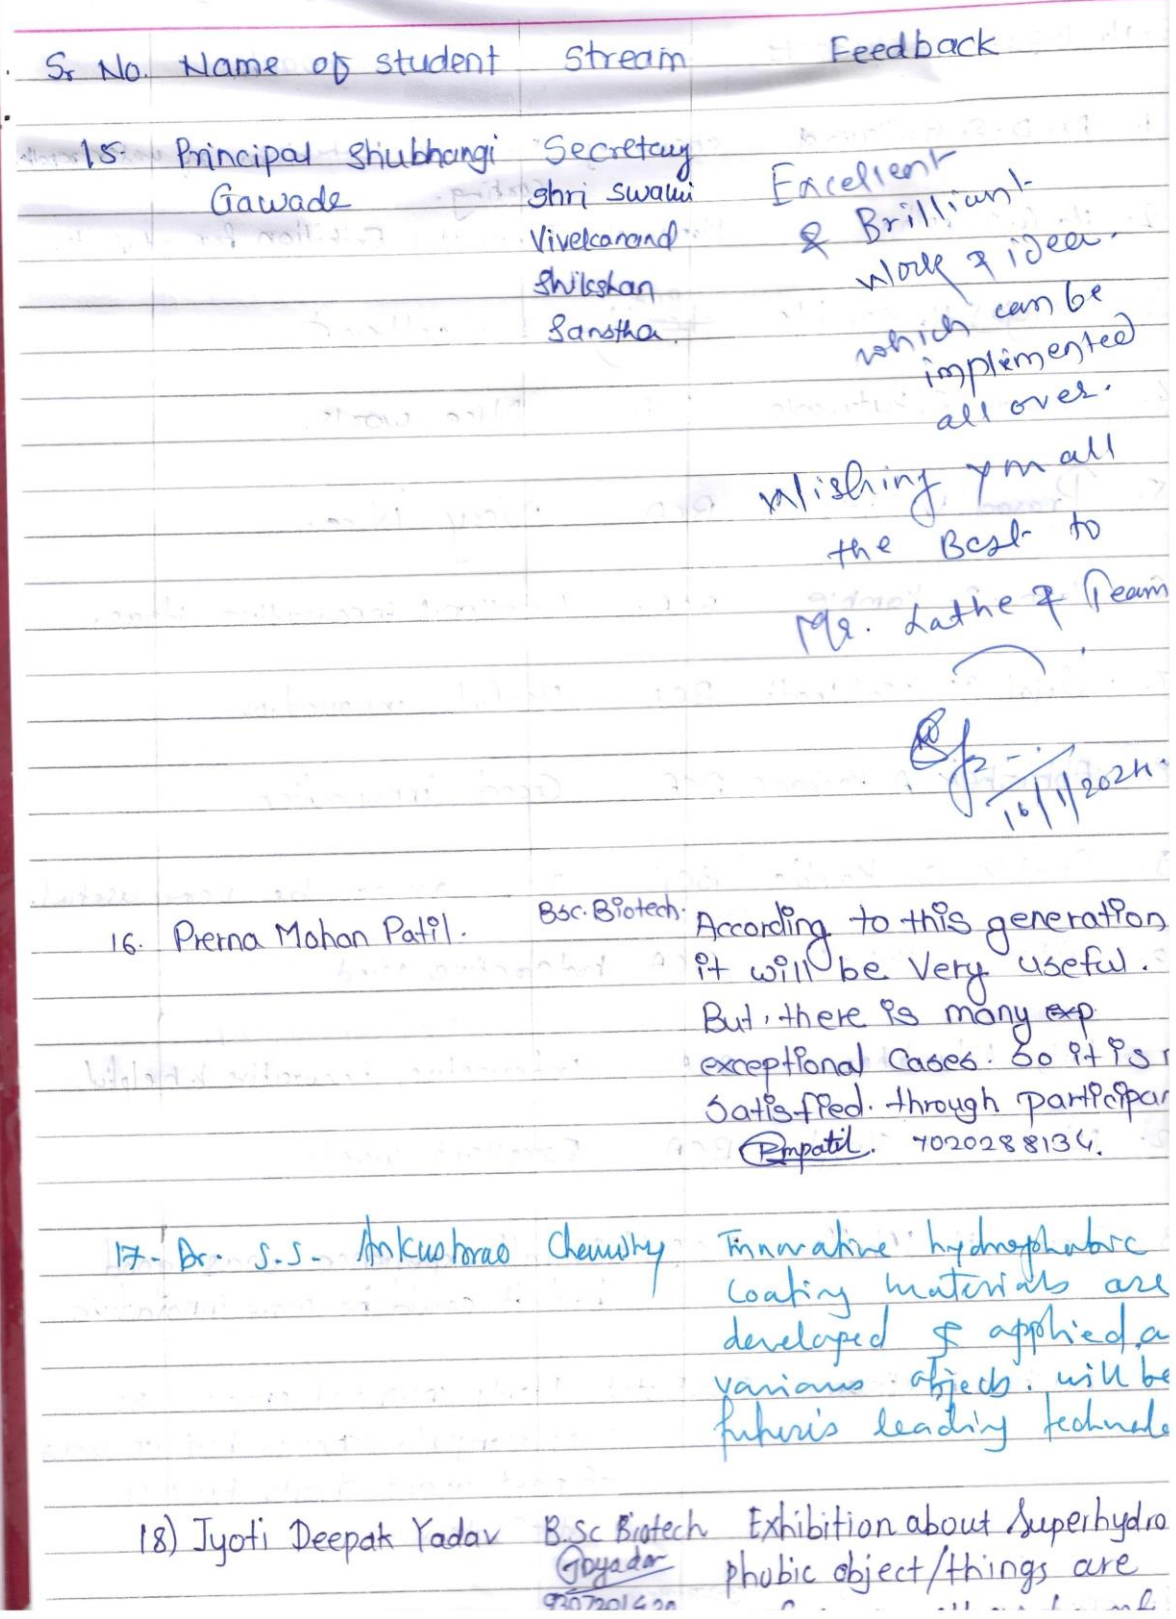 Sr No. Name of student Stream Feedback
15. Principal Shubhangi Secretary
Gawade Shri Swami
Vivekanand
Shikshan
Sanstha.
Excellent
& Brilliant
work & idea.
which can be
implemented
all over.
Wishing you all
the Best to
Mr. Lathe & Team
16/1/2024.
16. Prerna Mohan Patil. Bsc. Biotech. According to this generation,
it will be very useful.
But, there is many exp
exceptional cases. So it is
satisfied. through participan
Pmpatil. 7020288134.
17- Dr. S.S. Ankushrao Chemistry Innovative hydrophobic
coating materials are
developed & applied a
various objects. will be
future's leading technolo
18) Jyoti Deepak Yadav B.Sc Biotech Exhibition about Superhydro
phobic object/things are